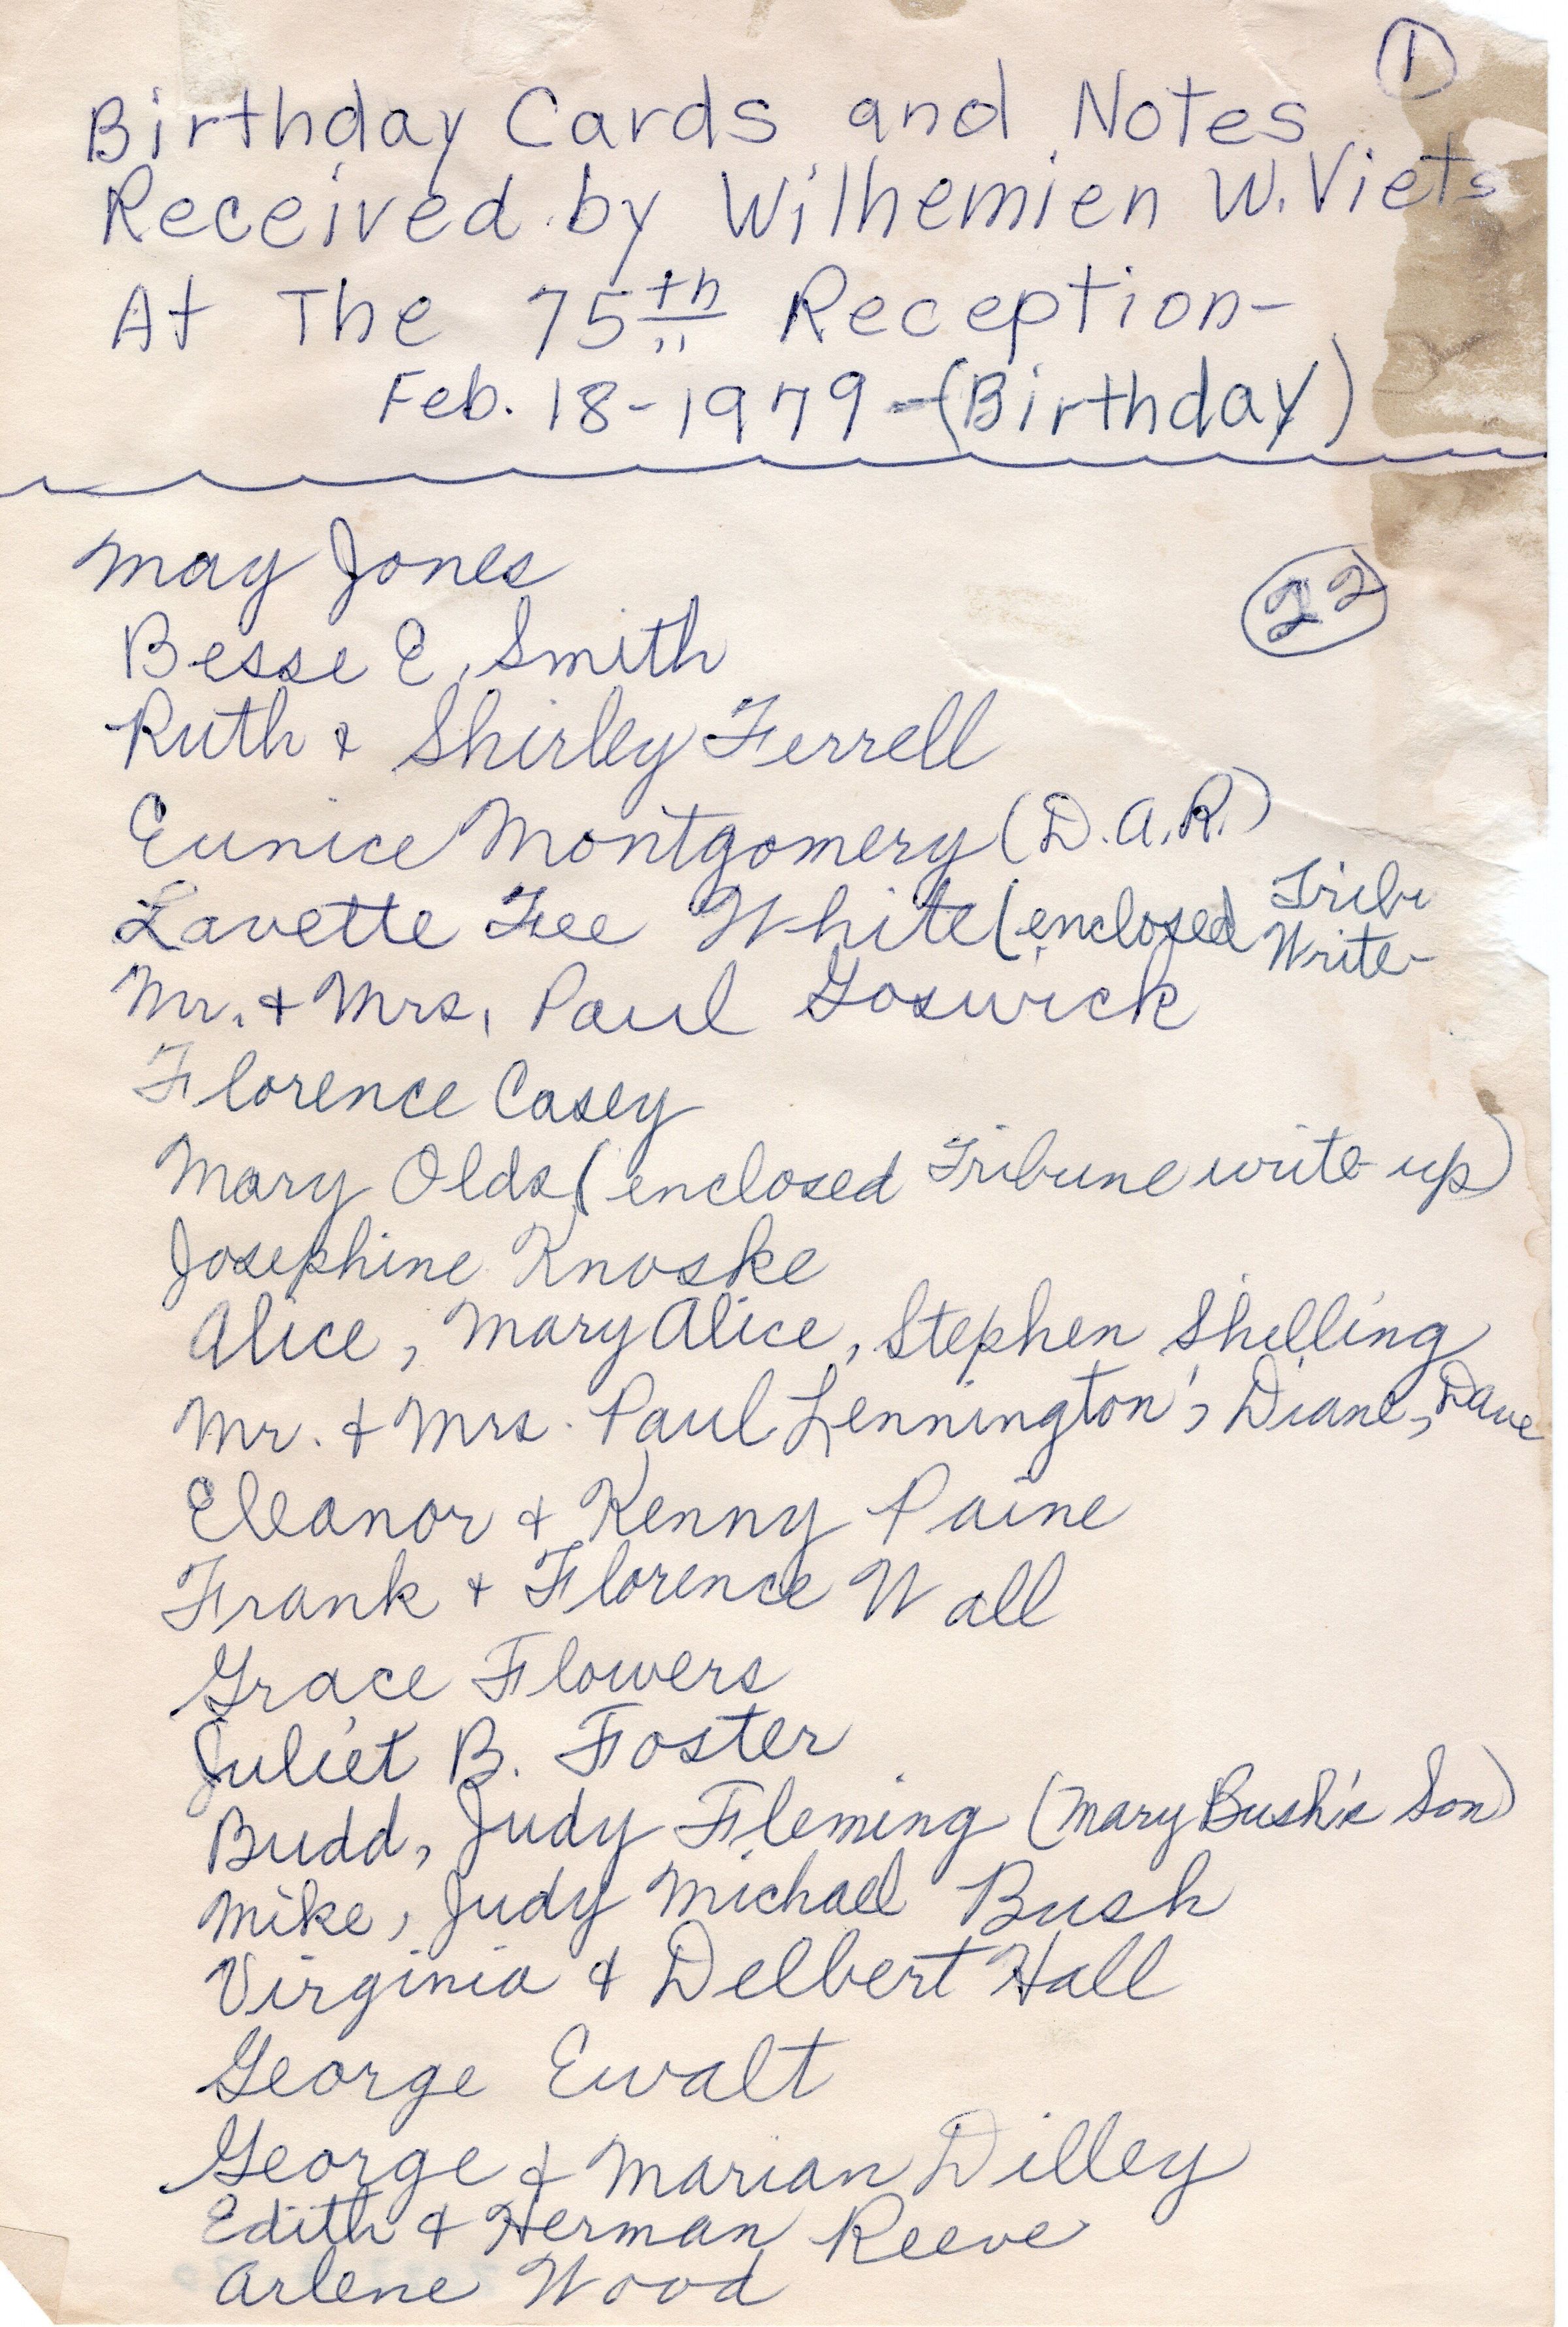 1
Birthday Cards and Notes
Received by Wilhemien W. Viets
At The 75th Reception-
Feb. 18-1979-(Birthday)
22
May Jones
Besse E. Smith
Ruth & Shirley Ferrell
Eunice Montgomery (D.A.R.)
Lavette Fee White (enclosed Tribu
Write-
Mr. & Mrs. Paul Goswick
Florence Casey
Mary Olds (enclosed Tribune write-up)
Josephine Knoske
Alice, Mary Alice, Stephen Shilling
Mr. & Mrs. Paul Lennington, Diane, Dave
Eleanor & Kenny Paine
Frank & Florence Wall
Grace Flowers
Juliet B. Foster
Budd, Judy Fleming (Mary Bush's Son)
Mike, Judy Michael Bush
Virginia & Delbert Hall
George Ewalt
George & Marian Dilley
Edith & Herman Reeve
Arlene Wood